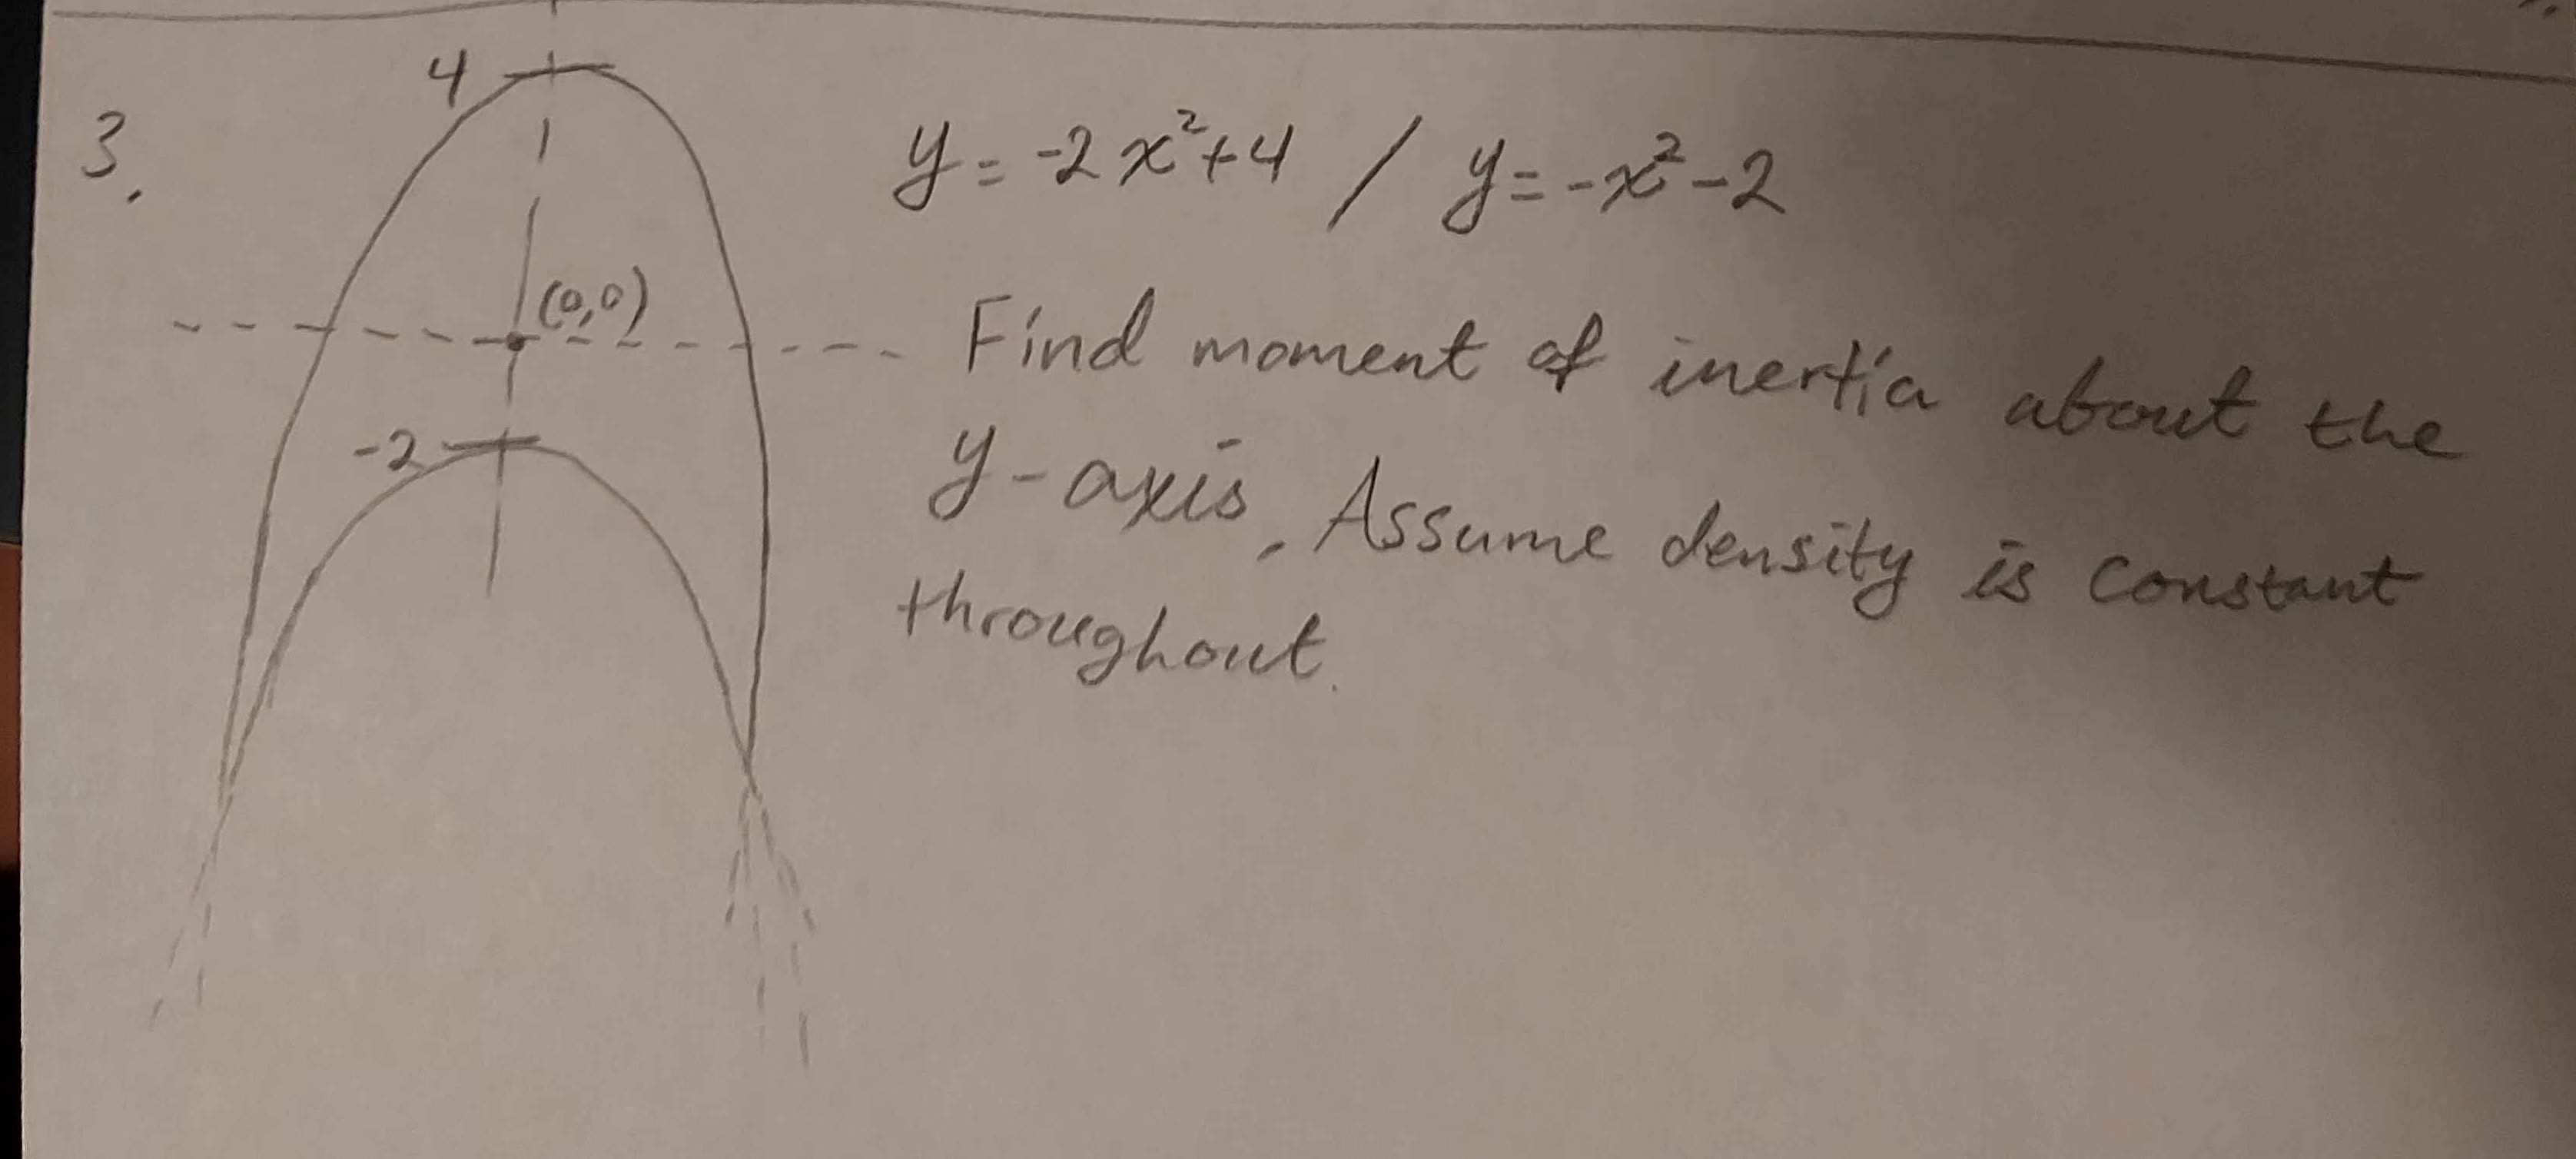 3.
4
y = -2x²+4 / y = -x²-2
(0,0)
-2
Find moment of inertia about the
y-axis. Assume density is constant
throughout.